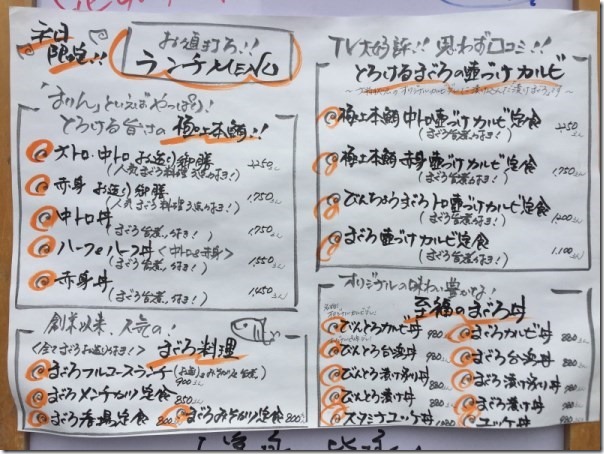 平日
限定!!
お値打ち!!
ランチMENU
「まりん」といえばやっぱり!
とろける旨さの極上本鮪!!
大トロ・中トロお造り御膳 2,250
(人気まぐろ料理3点付き!)
赤身お造り御膳 1,750
(人気まぐろ料理3点付き!)
中トロ丼 1,750
(まぐろ旨煮付き!)
ハーフ&ハーフ丼<中トロと赤身> 1,550
(まぐろ旨煮付き!)
赤身丼 1,450
(まぐろ旨煮付き!)
創業以来、人気の!
まぐろ料理
まぐろフルコースランチ
900
まぐろメンチカツ定食 850
まぐろ香揚定食 800
まぐろみそカツ定食 800
TV大好評!! 思わず口コミ!!
とろけるまぐろの壷づけカルビ
極上本鮪中トロ壷づけカルビ定食 2,250
(まぐろ旨煮付き!)
極上本鮪赤身壷づけカルビ定食 1,750
(まぐろ旨煮付き!)
びんちょうまぐろトロ壷づけカルビ定食 1,200
(まぐろ旨煮付き!)
まぐろ壷づけカルビ定食 1,100
(まぐろ旨煮付き!)
オリジナルの味わい豊かな!
至福のまぐろ丼
びんとろカルビ丼 980
まぐろカルビ丼 880
びんとろ台湾丼 980
まぐろ台湾丼 880
びんとろ漬け炙り丼 980
まぐろ漬け炙り丼 880
びんとろ漬け丼
まぐろ漬け丼 880
スタミナユッケ丼
ユッケ丼